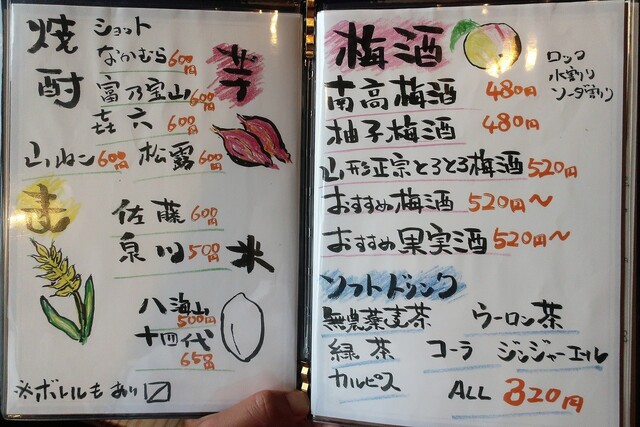 焼酎
ショット
芋
なかむら 600円
富乃宝山 600円
㐂六 600円
山ねこ 600円 松露 600円
麦
佐藤 600円
泉川 500円
米
八海山 500円
十四代 650円
※ボトルもあり〼
梅酒
ロック
水割り
ソーダ割り
南高梅酒 480円
柚子梅酒 480円
山形正宗とろとろ梅酒 520円
おすすめ梅酒 520円～
おすすめ果実酒 520円～
ソフトドリンク
無農薬麦茶 ウーロン茶
緑茶 コーラ ジンジャーエール
カルピス ALL 320円